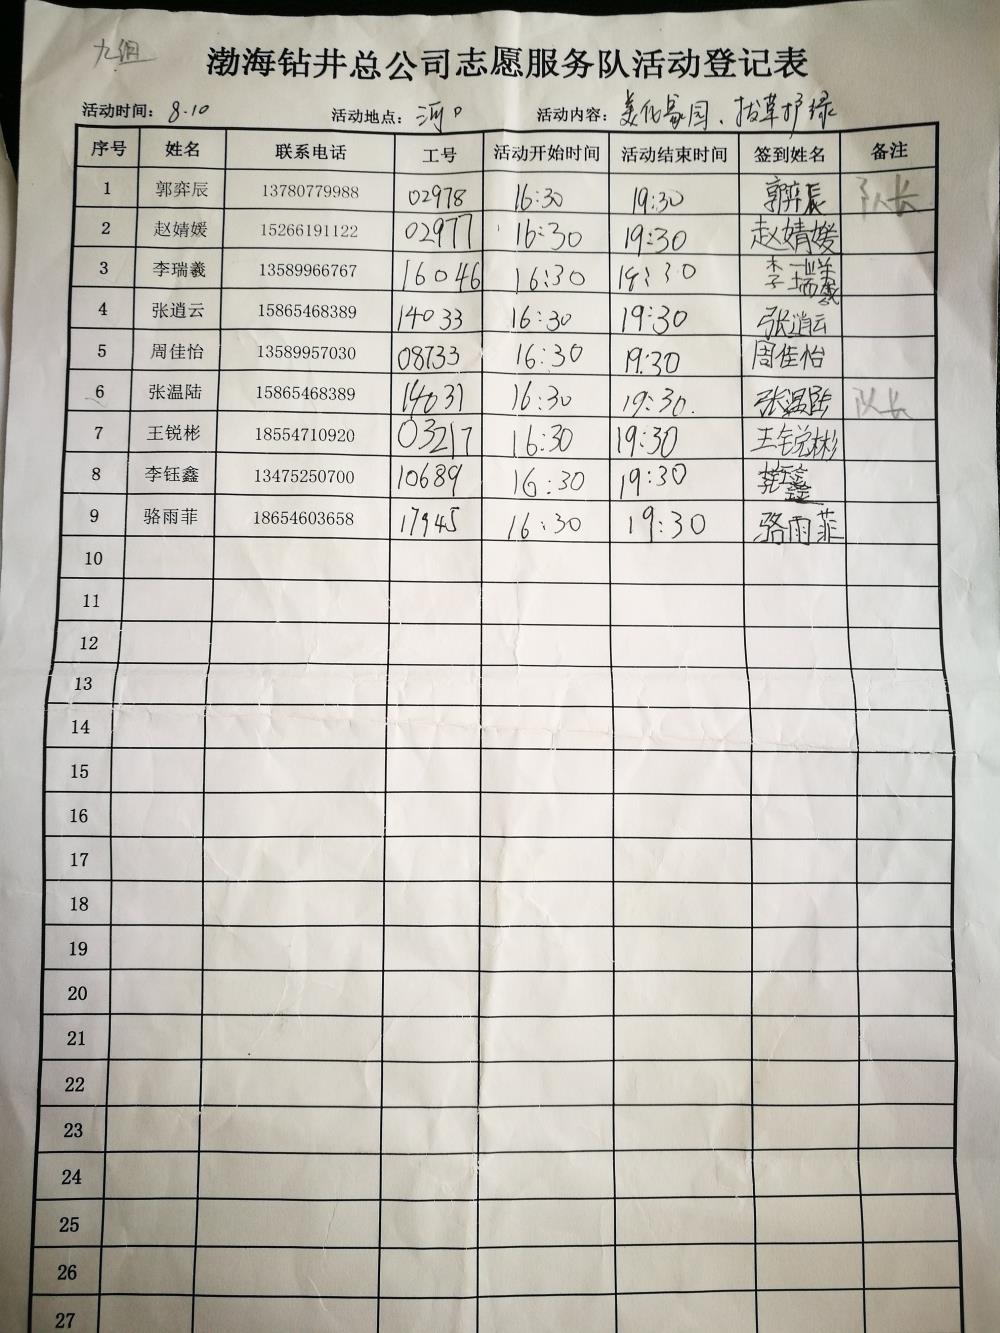 九组
渤海钻井总公司志愿服务队活动登记表
活动时间：8.10 活动地点：河口 活动内容：美化家园、拔草护绿
序号 姓名 联系电话 工号 活动开始时间 活动结束时间 签到姓名 备注
1 郭弈辰 13780779988 02978 16:30 19:30 郭弈辰 队长
2 赵婧媛 15266191122 02977 16:30 19:30 赵婧媛
3 李瑞羲 13589966767 16046 16:30 18:30 李瑞羲
4 张逍云 15865468389 14033 16:30 19:30 张逍云
5 周佳怡 13589957030 08733 16:30 19:30 周佳怡
6 张温陆 15865468389 14031 16:30 19:30. 张温陆 队长
7 王锐彬 18554710920 03217 16:30 19:30 王锐彬
8 李钰鑫 13475250700 10689 16:30 19:30 李钰鑫
9 骆雨菲 18654603658 17945 16:30 19:30 骆雨菲
10
11
12
13
14
15
16
17
18
19
20
21
22
23
24
25
26
27